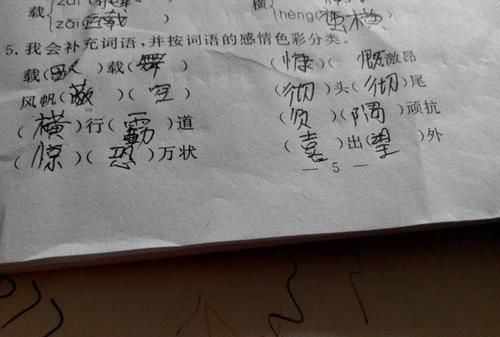 载 zǎi 横 hèng(蛮横
5.我会补充词语,并按词语的感情色彩分类。
载(歌)载(舞) (慷)(慨)激昂
风帆(蔽)(空) (彻)头(彻)尾
(横)行(霸)道 (负)(隅)顽抗
(惊)(恐)万状 (喜)出(望)外
— 5 —